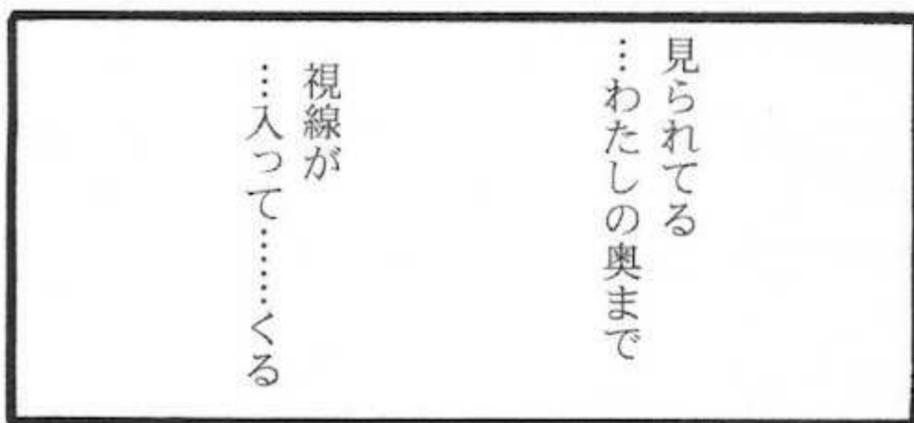 見られてる
…わたしの奥まで
視線が
…入って……くる